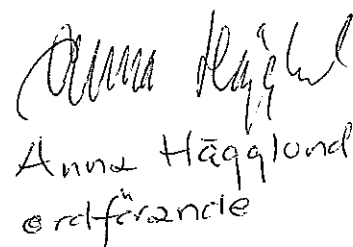 Anna Hägglund
Anna Hägglund
ordförande